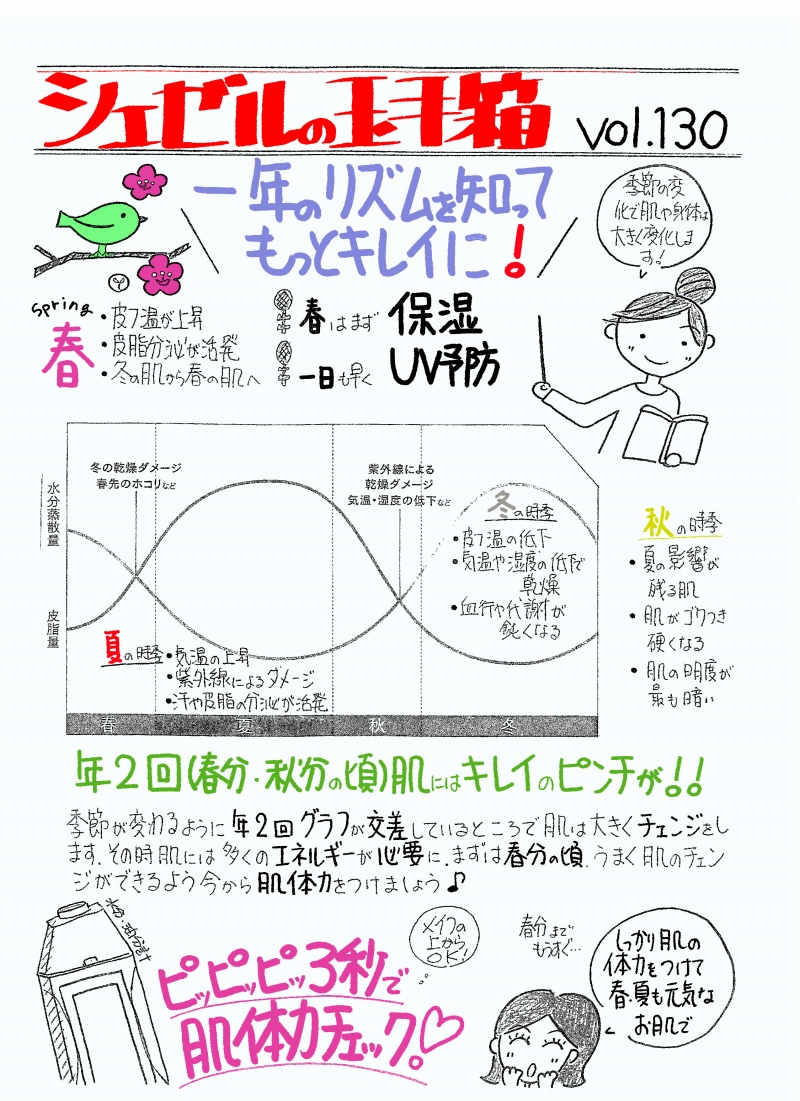 シェゼルの玉手箱 vol.130
一年のリズムを知って
もっとキレイに!
季節の変
化で肌や身体は
大きく変化しま
す!
spring
春
・皮フ温が上昇
・皮脂分泌が活発
・冬の肌から春の肌へ
春はまず 保湿
一日も早く UV予防
水分蒸散量
皮脂量
冬の乾燥ダメージ
春先のホコリなど
紫外線による
乾燥ダメージ
気温・湿度の低下など
冬の時季
・皮フ温の低下
・気温や湿度の低下で
乾燥
・血行や代謝が
鈍くなる
夏の時季
・気温の上昇
・紫外線によるダメージ
・汗や皮脂の分泌が活発
春 夏 秋 冬
秋の時季
・夏の影響が
残る肌
・肌がゴワつき
硬くなる
・肌の明度が
最も暗い
年2回(春分・秋分の頃)肌にはキレイのピンチが!!
季節が変わるように年2回グラフが交差しているところで肌は大きくチェンジをし
ます。その時肌には多くのエネルギーが必要に。まずは春分の頃、うまく肌のチェン
ジができるよう今から肌体力をつけましょう♪
水分・油分計
ピッピッピッ3秒で
肌体力チェック。♡
メイクの
上から
OK!
春分まで
もうすぐ…
しっかり肌の
体力をつけて
春・夏も元気な
お肌で